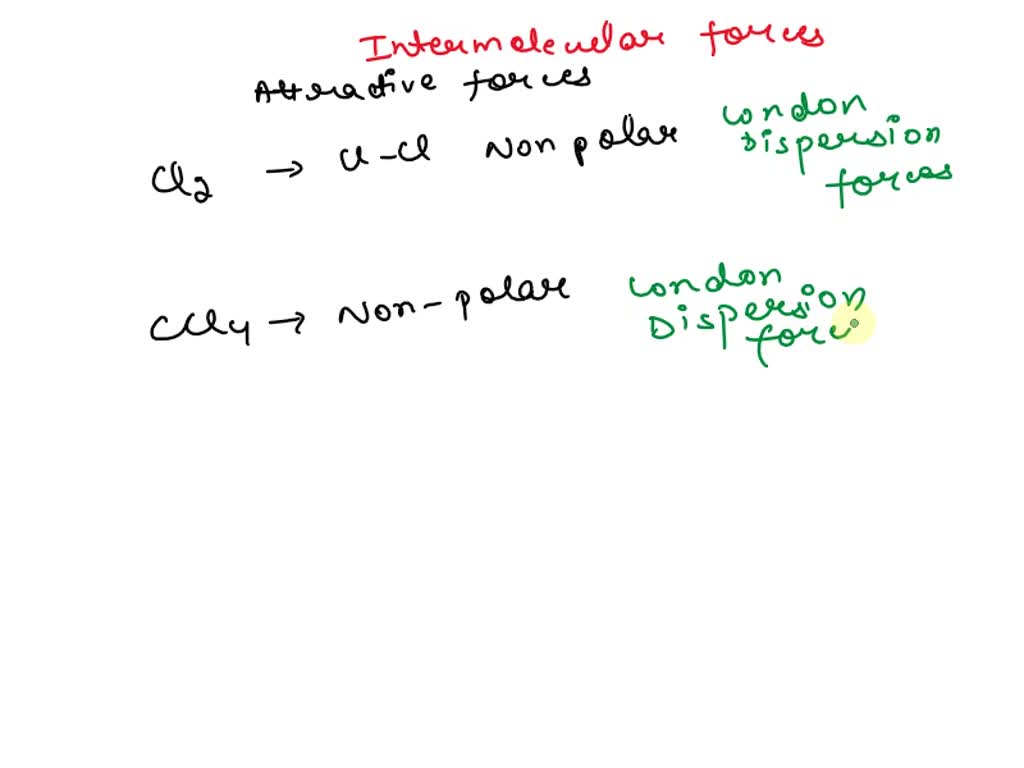 Intermolecular forces
Attractive forces
Cl2 → Cl-Cl Non polar London Dispersion forces
CCl4 → Non-polar London Dispersion forc